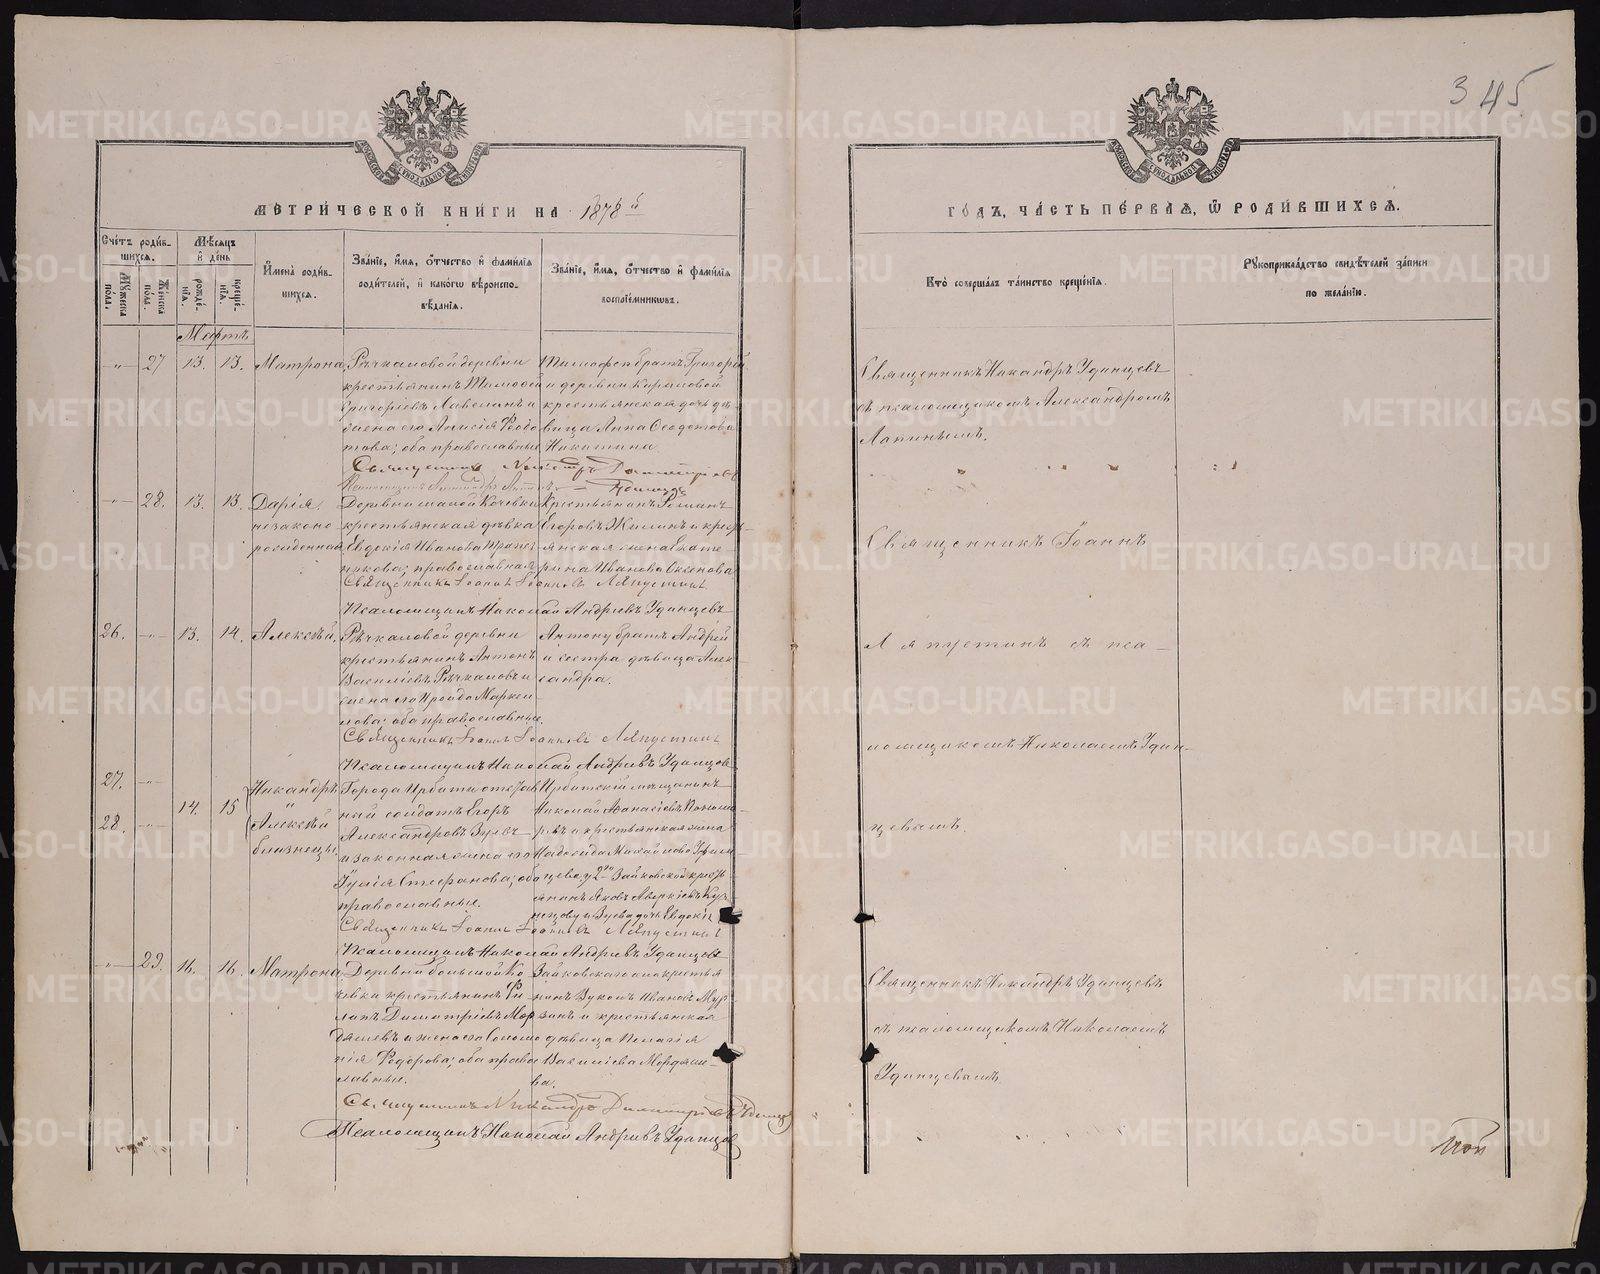 345
МЕТРИЧЕСКОЙ КНИГИ НА 1878й
ГОДЪ, ЧАСТЬ ПЕРВАЯ, Ѿ РОДИВШИХСЯ.
Счетъ родив-
шихся.
Мужеска
пола.
Женска
пола.
Мѣсяцъ
и день
рожде-
нія.
креще-
нія.
Имена родив-
шихся.
Званіе, имя, отчество и фамилія
родителей, и какогѡ вѣроиспо-
вѣданія.
Званіе, имя, отчество и фамилія
воспріемниковъ.
Кто совершалъ таинство крещенія.
Рукоприкладство свидѣтелей записи
по желанію.
Мартъ
-"- 27 13. 13. Матрона
Рѣчкаловой деревни
крестьянинъ Тимофей
Григоріевъ и
жена его Анисія Ѳеодо
това; оба православные
братъ Григорій
и деревни
крестьянская дочь дѣ
вица Анна Ѳеодотова
Никитина
Священникъ Никандръ Удинцевъ
съ псаломщикомъ Александромъ
Лапинымъ.
Священникъ Никандръ Димитріевъ
Удинцевъ
-"- 28. 13. 13. Дарія
незаконо
рожденная
Деревни малой Кочевки
крестьянская дѣвка
Евдокія Иванова
православная
Крестьянинъ Романъ
Егоровъ Жилинъ и крест
янская жена Екате-
рина Иванова Аксенова
Священникъ Іоаннъ Іоанновъ Ляпустинъ
Псаломщикъ Николай Андреевъ Удинцевъ
Священникъ Іоаннъ
26. -"- 13. 14. Алексѣй.
Рѣчкаловой деревни
крестьянинъ Антонъ
Василіевъ Рѣчкаловъ и
жена его Ираида Маркел
лова; оба православные.
Антону братъ Андрей
и сестра дѣвица Алек
сандра.
Ляпустинъ съ пса-
Священникъ Іоаннъ Іоанновъ Ляпустинъ
Псаломщикъ Николай Андреевъ Удинцевъ
ломщикомъ Николаемъ Удин-
цевымъ.
27. -"-
28. -"-
14. 15
Никандръ
и
Алексѣй
близнецы
Города Ирбити отстав
ной солдатъ Егоръ
Александровъ Зуевъ
и законная жена его
Іулія Стефанова; оба
православные.
Ирбитскій мѣщанинъ
Николай Аѳанасіевъ Поном
ревъ и крестьянская жена
Надежда Михайлова
2го Зайковской крест
янинъ Яковъ Аверкіевъ Куз
нецовъ и Зуева дочь Евдокія
Священникъ Іоаннъ Іоанновъ Ляпустинъ
Псаломщикъ Николай Андреевъ Удинцевъ
-"- 29. 16. 16. Матрона
Деревни большой Ко
чевки крестьянинъ Фи
латъ Димитріевъ Мор
дяшевъ и жена его Соломо
нія Ѳедорова; оба право
славные.
Зайковскаго села крестья
нинъ Иванов Мур
зинъ и крестьянская
дѣвица Пелагія
Василіева Мордяше
ва.
Священникъ Никандръ Удинцевъ
съ псаломщикомъ Николаемъ
Удинцевымъ
Священникъ Никандръ Димитріевъ Удинцевъ
Псаломщикъ Николай Андреевъ Удинцевъ